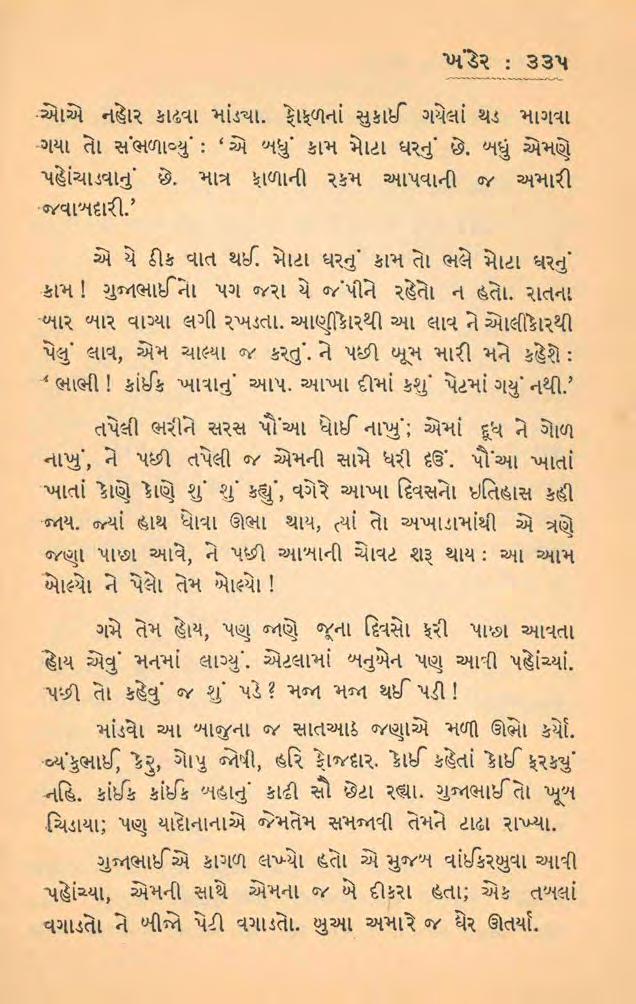 ખંડેર : ૩૩૫
ઓએ નહોર કાઢવા માંડ્યા. ફોફળનાં સુકાઈ ગયેલાં થડ માગવા
ગયા તો સંભળાવ્યું : ‘એ બધું કામ મોટા ઘરનું છે. બધું એમણે
પહોંચાડવાનું છે. માત્ર ફાળાની રકમ આપવાની જ અમારી
જવાબદારી.’
એ યે ઠીક વાત થઈ. મોટા ઘરનું કામ તો ભલે મોટા ઘરનું
કામ ! ગુજાભાઈનો પગ જરા યે જંપીને રહેતો ન હતો. રાતના
બાર બાર વાગ્યા લગી રખડતા. આણીકોરથી આ લાવ ને ઓલીકોરથી
પેલું લાવ, એમ ચાલ્યા જ કરતું. ને પછી બૂમ મારી મને કહેશે :
‘ ભાભી ! કાંઈક ખાવાનું આપ. આખા દીમાં કશું પેટમાં ગયું નથી.’
તપેલી ભરીને સરસ પૌંઆ ધોઈ નાખું; એમાં દૂધ ને ગોળ
નાખું, ને પછી તપેલી જ એમની સામે ધરી દઉં. પૌંઆ ખાતાં
ખાતાં કોણે કોણે શું શું કહ્યું, વગેરે આખા દિવસનો ઇતિહાસ કહી
જાય. જ્યાં હાથ ધોવા ઊભા થાય, ત્યાં તો અખાડામાંથી એ ત્રણે
જણા પાછા આવે, ને પછી આબાની ચોવટ શરૂ થાય : આ આમ
બોલ્યો ને પેલો તેમ બોલ્યો !
ગમે તેમ હોય, પણ જાણે જૂના દિવસો ફરી પાછા આવતા
હોય એવું મનમાં લાગ્યું. એટલામાં બનુબેન પણ આવી પહોંચ્યાં.
પછી તો કહેવું જ શું પડે ? મજા મજા થઈ પડી !
માંડવો આ બાજુના જ સાતઆઠ જણાએ મળી ઊભો કર્યો.
વ્યંકુભાઈ, કેરુ, ગોપુ જોષી, હરિ ફોજદાર. કોઈ કહેતાં કોઈ ફરક્યું
નહિ. કાંઈક કાંઈક બહાનું કાઢી સૌ છેટા રહ્યા. ગુજાભાઈ તો ખૂબ
ચિડાયા; પણ યાદોનાનાએ જેમતેમ સમજાવી તેમને ટાઢા રાખ્યા.
ગુજાભાઈએ કાગળ લખ્યો હતો એ મુજબ વાંઈકરબુવા આવી
પહોંચ્યા, એમની સાથે એમના જ બે દીકરા હતા; એક તબલાં
વગાડતો ને બીજો પેટી વગાડતો. બુઆ અમારે જ ઘેર ઊતર્યા.